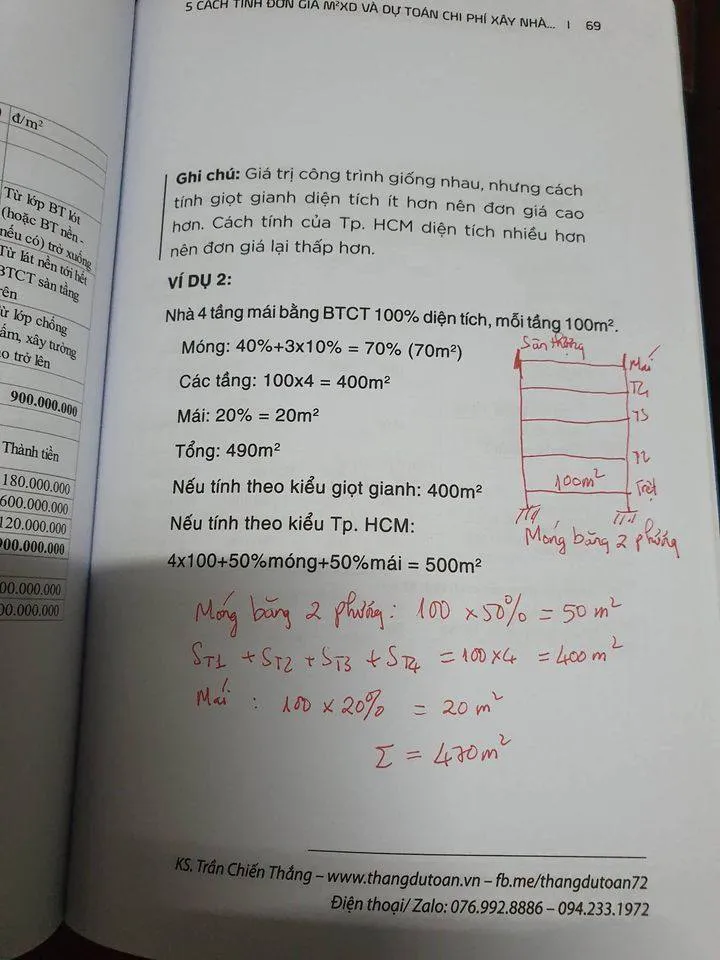 5 CÁCH TÍNH ĐƠN GIÁ M²XD VÀ DỰ TOÁN CHI PHÍ XÂY NHÀ... | 69
đ/m²
Từ lớp BT lót
(hoặc BT nền -
nếu có) trở xuống
Từ lát nền tới hết
BTCT sàn tầng
rên
ừ lớp chống
ấm, xây tường
ao trở lên
900.000.000
Thành tiền
180.000.000
600.000.000
120.000.000
900.000.000
00.000.000
00.000.000
Ghi chú: Giá trị công trình giống nhau, nhưng cách
tính giọt gianh diện tích ít hơn nên đơn giá cao
hơn. Cách tính của Tp. HCM diện tích nhiều hơn
nên đơn giá lại thấp hơn.
VÍ DỤ 2:
Nhà 4 tầng mái bằng BTCT 100% diện tích, mỗi tầng 100m².
Móng: 40%+3x10% = 70% (70m²)
Các tầng: 100x4 = 400m²
Mái: 20% = 20m²
Tổng: 490m²
Nếu tính theo kiểu giọt gianh: 400m²
Nếu tính theo kiểu Tp. HCM:
4x100+50%móng+50%mái = 500m²
Sân thượng
Mái
T4
T3
T2
100m²
Trệt
Móng băng 2 phương
Móng băng 2 phương: 100 x 50% = 50 m²
ST1 + ST2 + ST3 + ST4 = 100x4 = 400m²
Mái : 100 x 20% = 20 m²
Σ = 470m²
KS. Trần Chiến Thắng – www.thangdutoan.vn – fb.me/thangdutoan72
Điện thoại/ Zalo: 076.992.8886 – 094.233.1972